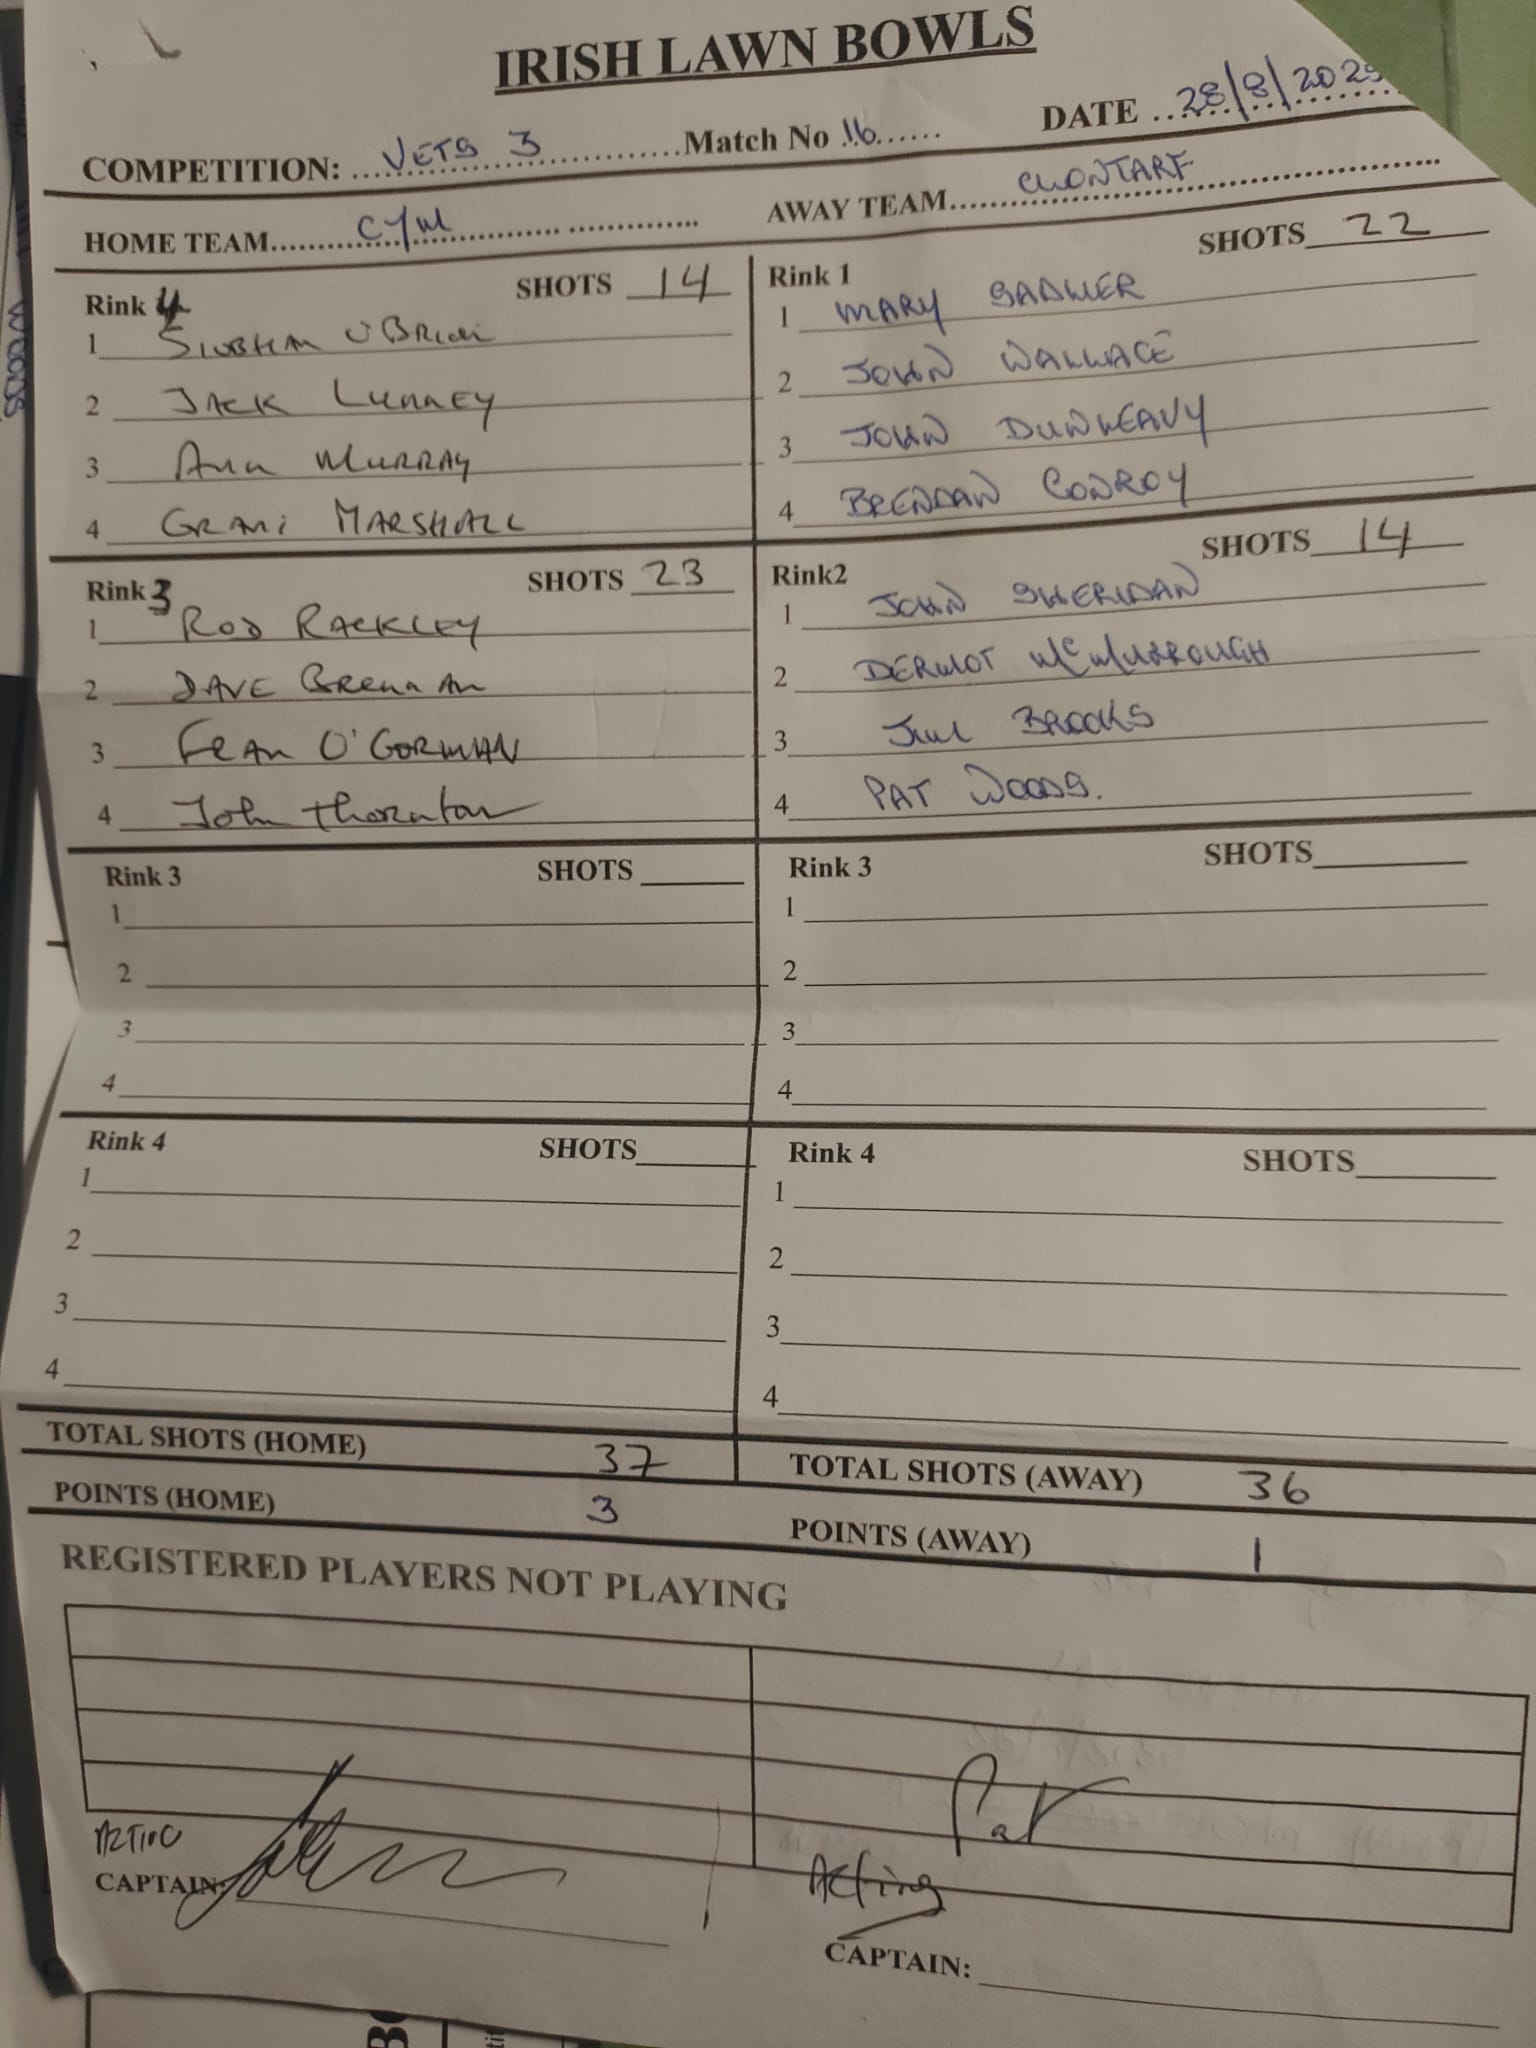 IRISH LAWN BOWLS
COMPETITION: VETS 3 Match No 16 DATE 28/8/2025
HOME TEAM CYM AWAY TEAM CLONTARF
Rink 4 SHOTS 14
1 SIOBHAN O'BRIEN
2 JACK LUNNEY
3 Ann MURRAY
4 GRANI MARSHALL
Rink 1 SHOTS 22
1 MARY SADLIER
2 JOHN WALLACE
3 JOHN DUNLEAVY
4 BRENDAN CONROY
Rink 3 SHOTS 23
1 ROD RACKLEY
2 DAVE BRENNAN
3 FRAN O'GORMAN
4 John Thornton
Rink2 SHOTS 14
1 JOHN SHERIDAN
2 DERMOT McMURROUGH
3 BROOKS
4 PAT WOODS.
Rink 3 SHOTS
1
2
3
4
Rink 3 SHOTS
1
2
3
4
Rink 4 SHOTS
1
2
3
4
Rink 4 SHOTS
1
2
3
4
TOTAL SHOTS (HOME) 37 TOTAL SHOTS (AWAY) 36
POINTS (HOME) 3 POINTS (AWAY) 1
REGISTERED PLAYERS NOT PLAYING
Pat
CAPTAIN:
Acting
CAPTAIN:
WOODS